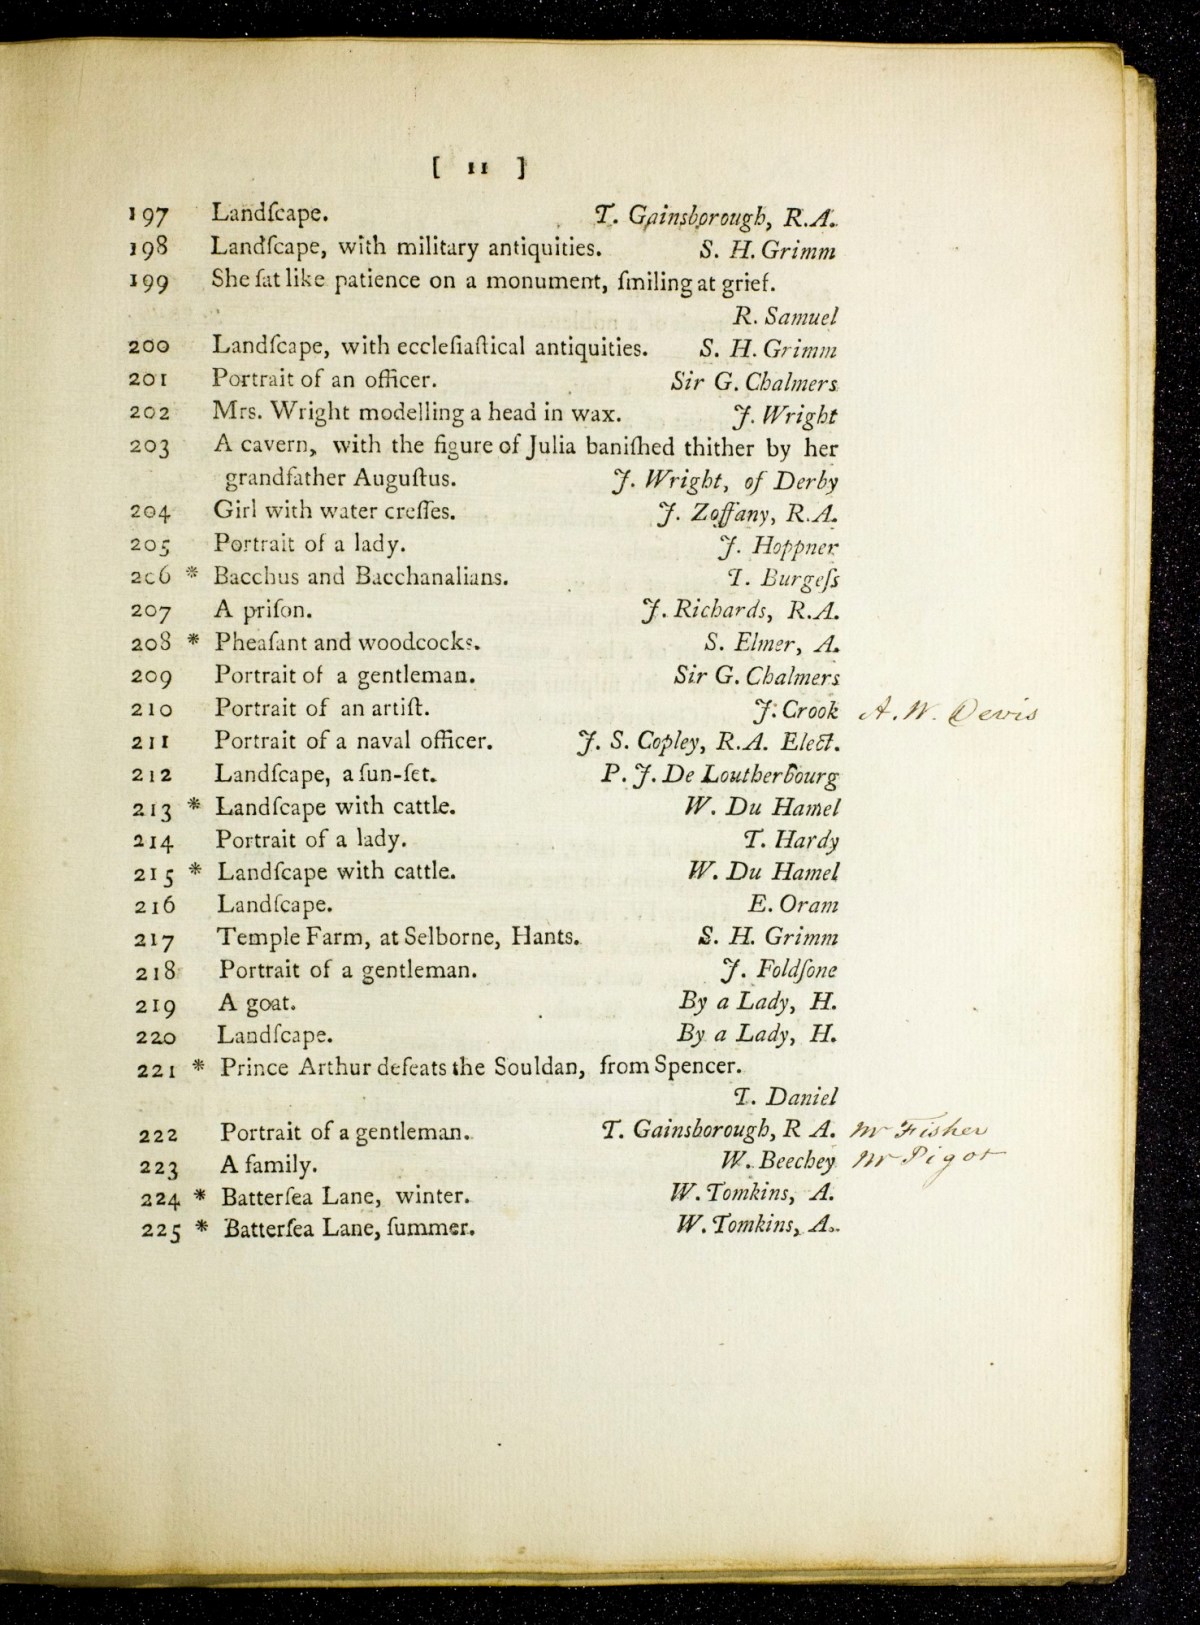 [ 11 ]
197 Landſcape. T. Gainsborough, R.A.
198 Landſcape, with military antiquities. S. H. Grimm
199 She ſat like patience on a monument, ſmiling at grief.
R. Samuel
200 Landſcape, with eccleſiaſtical antiquities. S. H. Grimm
201 Portrait of an officer. Sir G. Chalmers
202 Mrs. Wright modelling a head in wax. J. Wright
203 A cavern, with the figure of Julia baniſhed thither by her
grandfather Auguſtus. J. Wright, of Derby
204 Girl with water creſſes. J. Zoffany, R.A.
205 Portrait of a lady. J. Hoppner
206 * Bacchus and Bacchanalians. T. Burgeſs
207 A priſon. J. Richards, R.A.
208 * Pheaſant and woodcocks. S. Elmer, A.
209 Portrait of a gentleman. Sir G. Chalmers
210 Portrait of an artiſt. J. Crook A. W. Devis
211 Portrait of a naval officer. J. S. Copley, R.A. Elect.
212 Landſcape, a ſun-ſet. P. J. De Loutherbourg
213 * Landſcape with cattle. W. Du Hamel
214 Portrait of a lady. T. Hardy
215 * Landſcape with cattle. W. Du Hamel
216 Landſcape. E. Oram
217 Temple Farm, at Selborne, Hants. S. H. Grimm
218 Portrait of a gentleman. J. Foldſone
219 A goat. By a Lady, H.
220 Landſcape. By a Lady, H.
221 * Prince Arthur defeats the Souldan, from Spencer.
T. Daniel
222 Portrait of a gentleman. T. Gainsborough, R A. Mr Fisher
223 A family. W. Beechey Mr Pigot
224 * Batterſea Lane, winter. W. Tomkins, A.
225 * Batterſea Lane, ſummer. W. Tomkins, A.